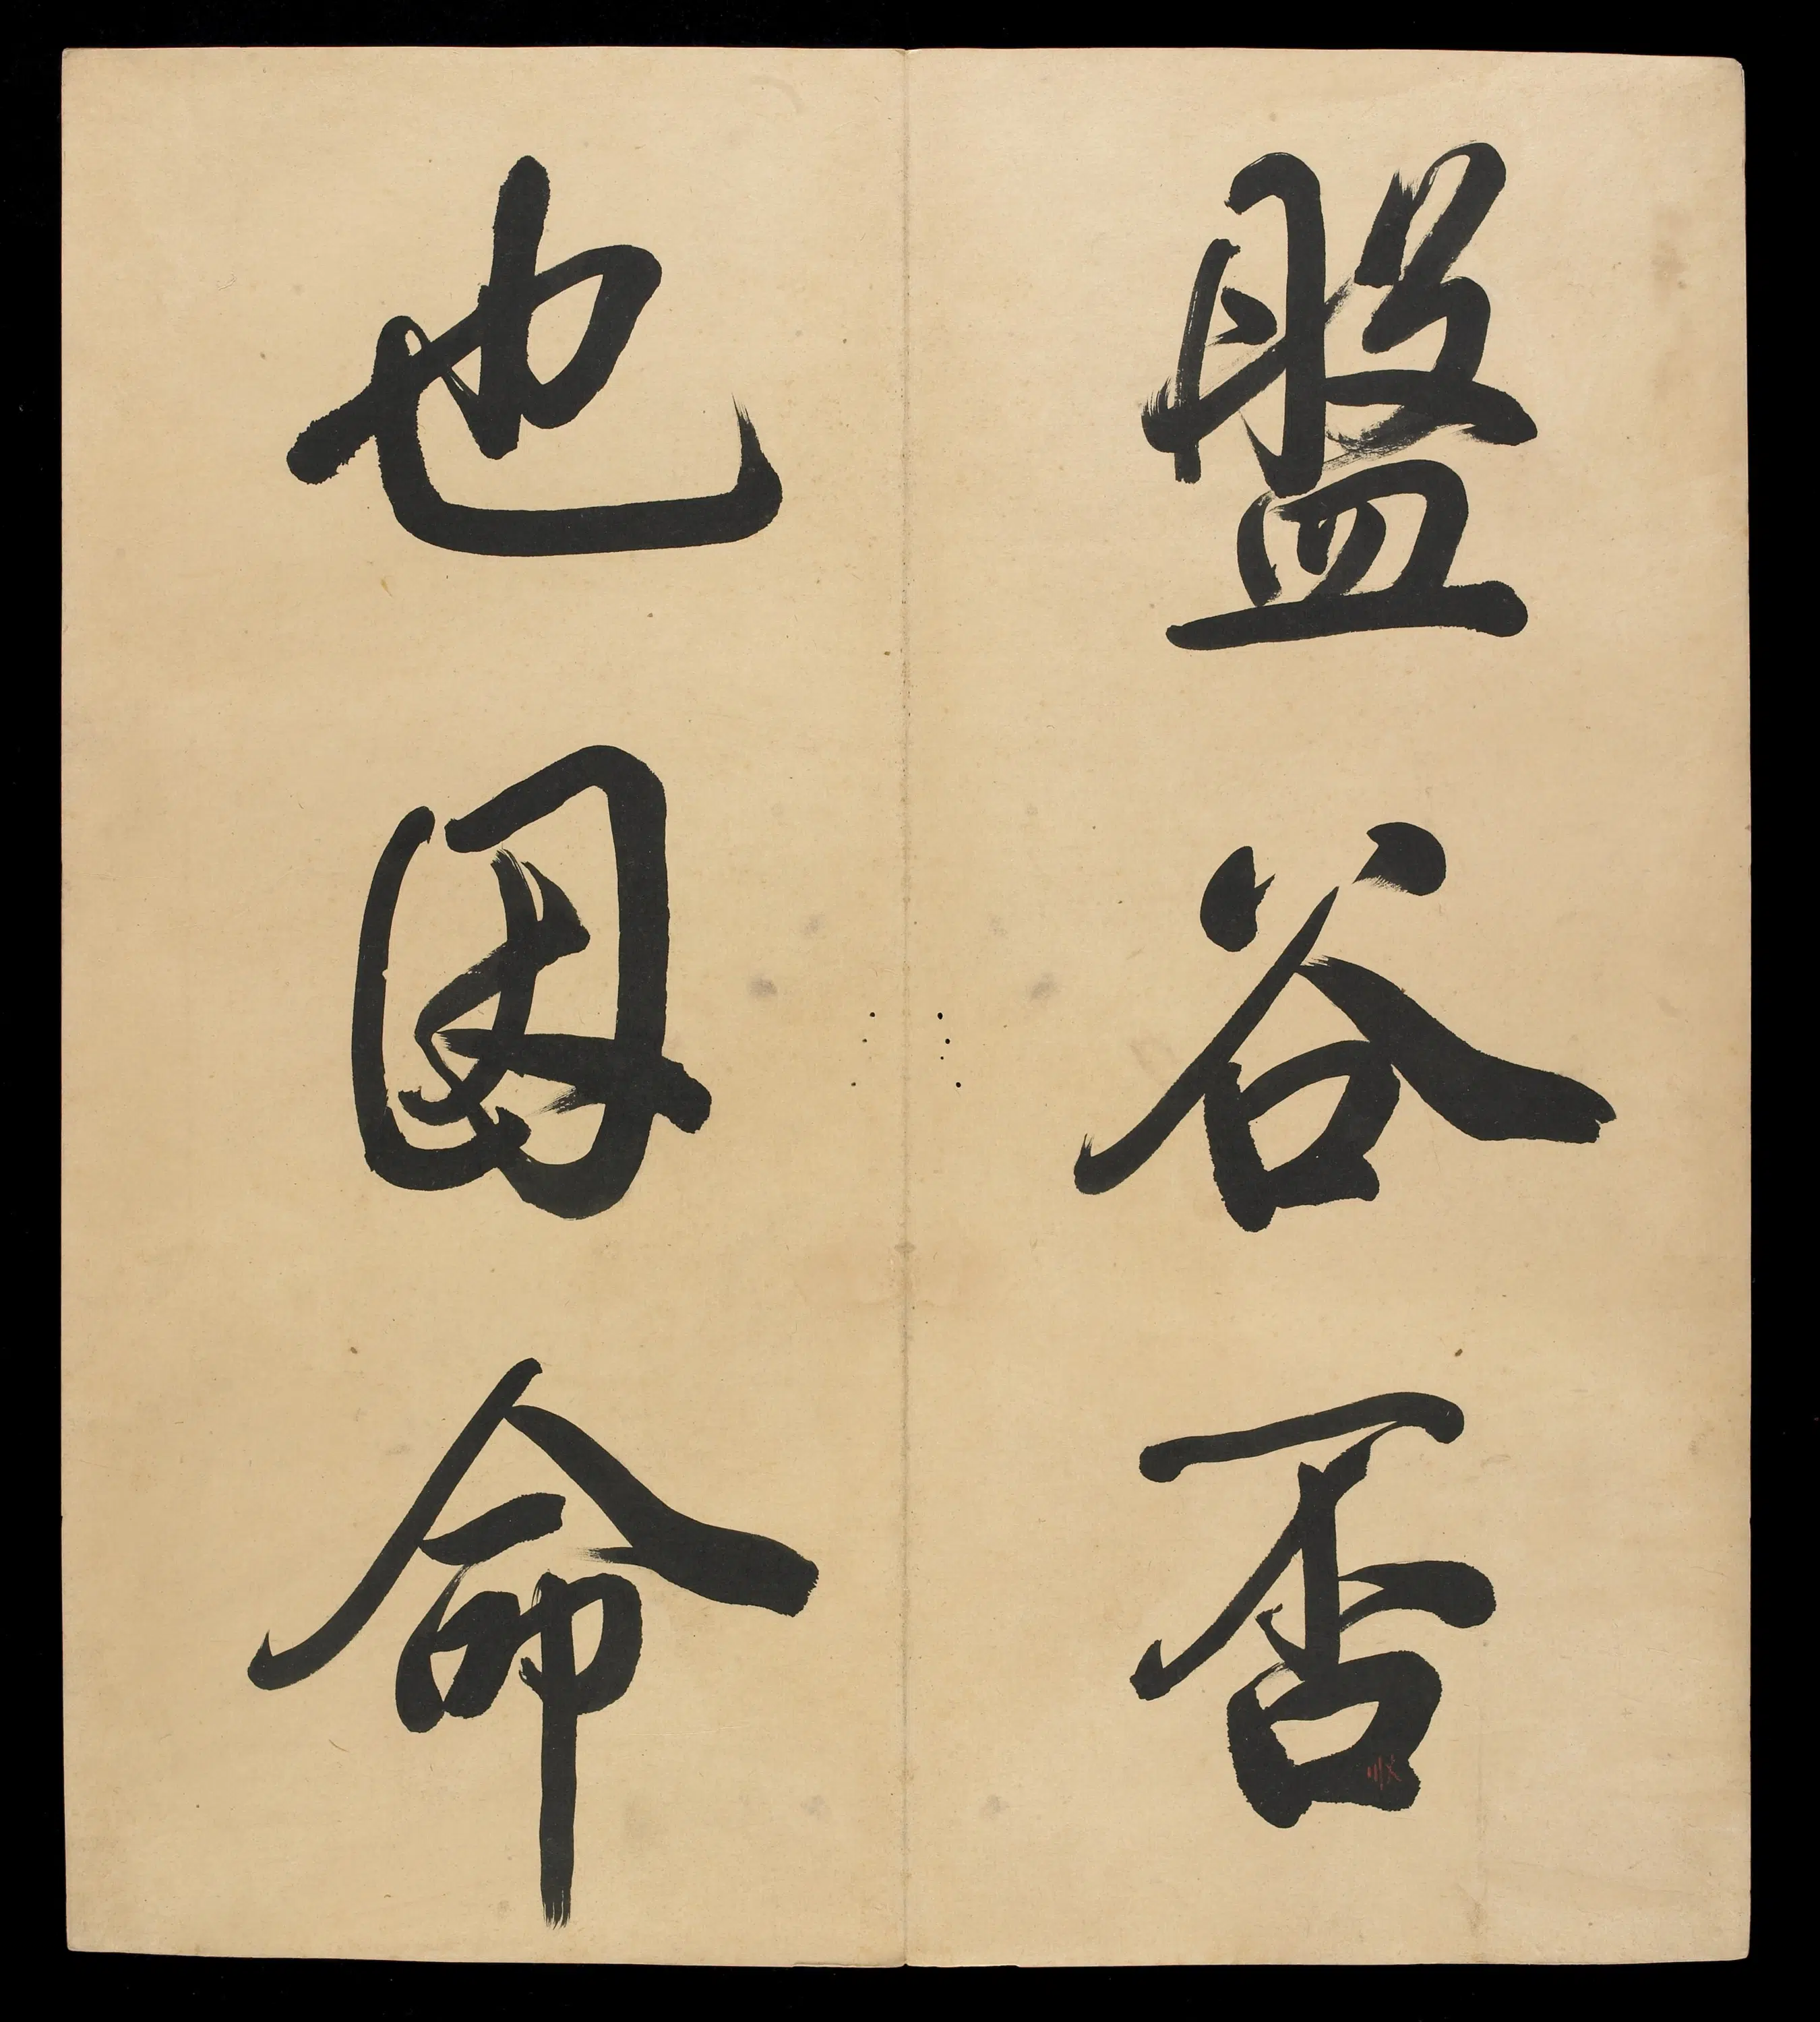 盤谷否
也因命